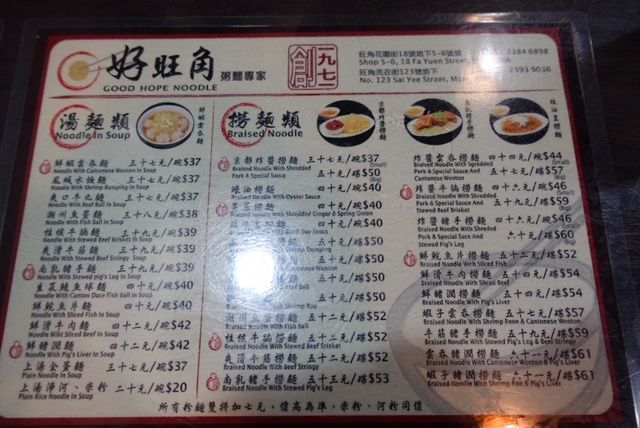 好旺角 粥麵專家
GOOD HOPE NOODLE
創 一九七一
旺角花園街18號地下5-6號舖 2384 6898
Shop 5-6, 18 Fa Yuen Street,
旺角洗衣街123號地下 2393 9036
No. 123 Sai Yee Street,
湯麵類
Noodle in Soup
鮮蝦雲吞麵
鮮蝦雲吞麵 三十七元/碗 $37
Noodle With Cantonese Wonton In Soup
鳳城水餃麵 三十七元/碗 $37
Noodle With Shrimp Dumpling In Soup
爽口牛丸麵 三十七元/碗 $37
Noodle With Beef Ball In Soup
潮州魚蛋麵 三十八元/碗 $38
Noodle With Fish Ball In Soup
桂候牛腩麵 三十九元/碗 $39
Noodle With Stewed Beef Brisket In Soup
爽滑牛筋麵 三十九元/碗 $39
Noodle With Stewed Beef Stringy Soup
南乳豬手麵 三十九元/碗 $39
Noodle With Stewed Pig's Leg In Soup
生菜鯪魚球麵 四十元/碗 $40
Noodle With Canton Dace Fish Ball In Soup
鮮鯇魚片麵 四十元/碗 $40
Noodle With Sliced Fish In Soup
鮮滑牛肉麵 四十二元/碗 $42
Noodle With Sliced Beef In Soup
鮮豬潤麵 四十二元/碗 $42
Noodle With Pig's Liver In Soup
上湯全蛋麵 三十七元/碗 $37
Plain Noodle In Soup
上湯淨河、米粉 二十元/碗 $20
Plain Rice Noodle In Soup
撈麵類
Braised Noodle
京都炸醬撈麵
京都炸醬撈麵 三十七元/碗 $37 (Small)
Braised Noodle With Shredded
Pork & Special Sauce 五十元/碟 $50
蠔油撈麵 四十元/碗 $40
Braised Noodle With Oyster Sauce
四十元/碗 $40
Braised Noodle With Shredded Ginger & Spring Onion
四十元/碗 $40
五十元/碟 $50
五十元/碟 $50
五十元/碟 $50
五十元/碟 $50
潮州魚蛋撈麵 五十二元/碟 $52
Braised Noodle With Fish Ball
桂候牛腩撈麵 五十二元/碟 $52
Braised Noodle With Stewed Beef Brisket
爽筒牛筋撈麵 五十二元/碟 $52
Braised Noodle With Beef Stringy
南乳豬手撈麵 五十三元/碟 $53
Braised Noodle With Stewed Pig's Leg
炸醬雲吞撈麵 四十四元/碗 $44 (Small)
Braised Noodle With Shredded
Pork & Special Sauce And 五十七元/碟 $57
Cantonese Wonton (Big)
炸醬牛腩撈麵 四十六元/碗 $46 (Small)
Braised Noodle With Shredded
Pork & Special Sauce And 五十九元/碟 $59
Stewed Beef Brisket (Big)
炸醬豬手撈麵 四十六元/碗 $46
Braised Noodle With Shredded
Pork & Special Sace And 六十元/碟 $60
Stewed Pig's Leg (Big)
鮮鯇魚片撈麵 五十二元/碟 $52
Braised Noodle With Sliced Fish
鮮滑牛肉撈麵 五十四元/碟 $54
Braised Noodle With Sliced Beef
鮮豬潤撈麵 五十四元/碟 $54
Braised Noodle With Pig's Liver
蝦子雲吞撈麵 五十七元/碟 $57
Braised Noodle With Shrimp Roe & Cantonese Wonton
牛筋豬手撈麵 五十九元/碟 $59
Braised Noodle With Stewed Pig's Leg & Beef Stringy
雲吞豬潤撈麵 六十一元/碟 $61
Braised Noodle With Cantonese Wonton & Pig's Liver
蝦子豬手撈麵 六十一元/碟 $61
Braised Noodle With Shrimp Roe & Pig's Leg
所有粉麵雙拼加七元，價高為準，米粉、河粉同價